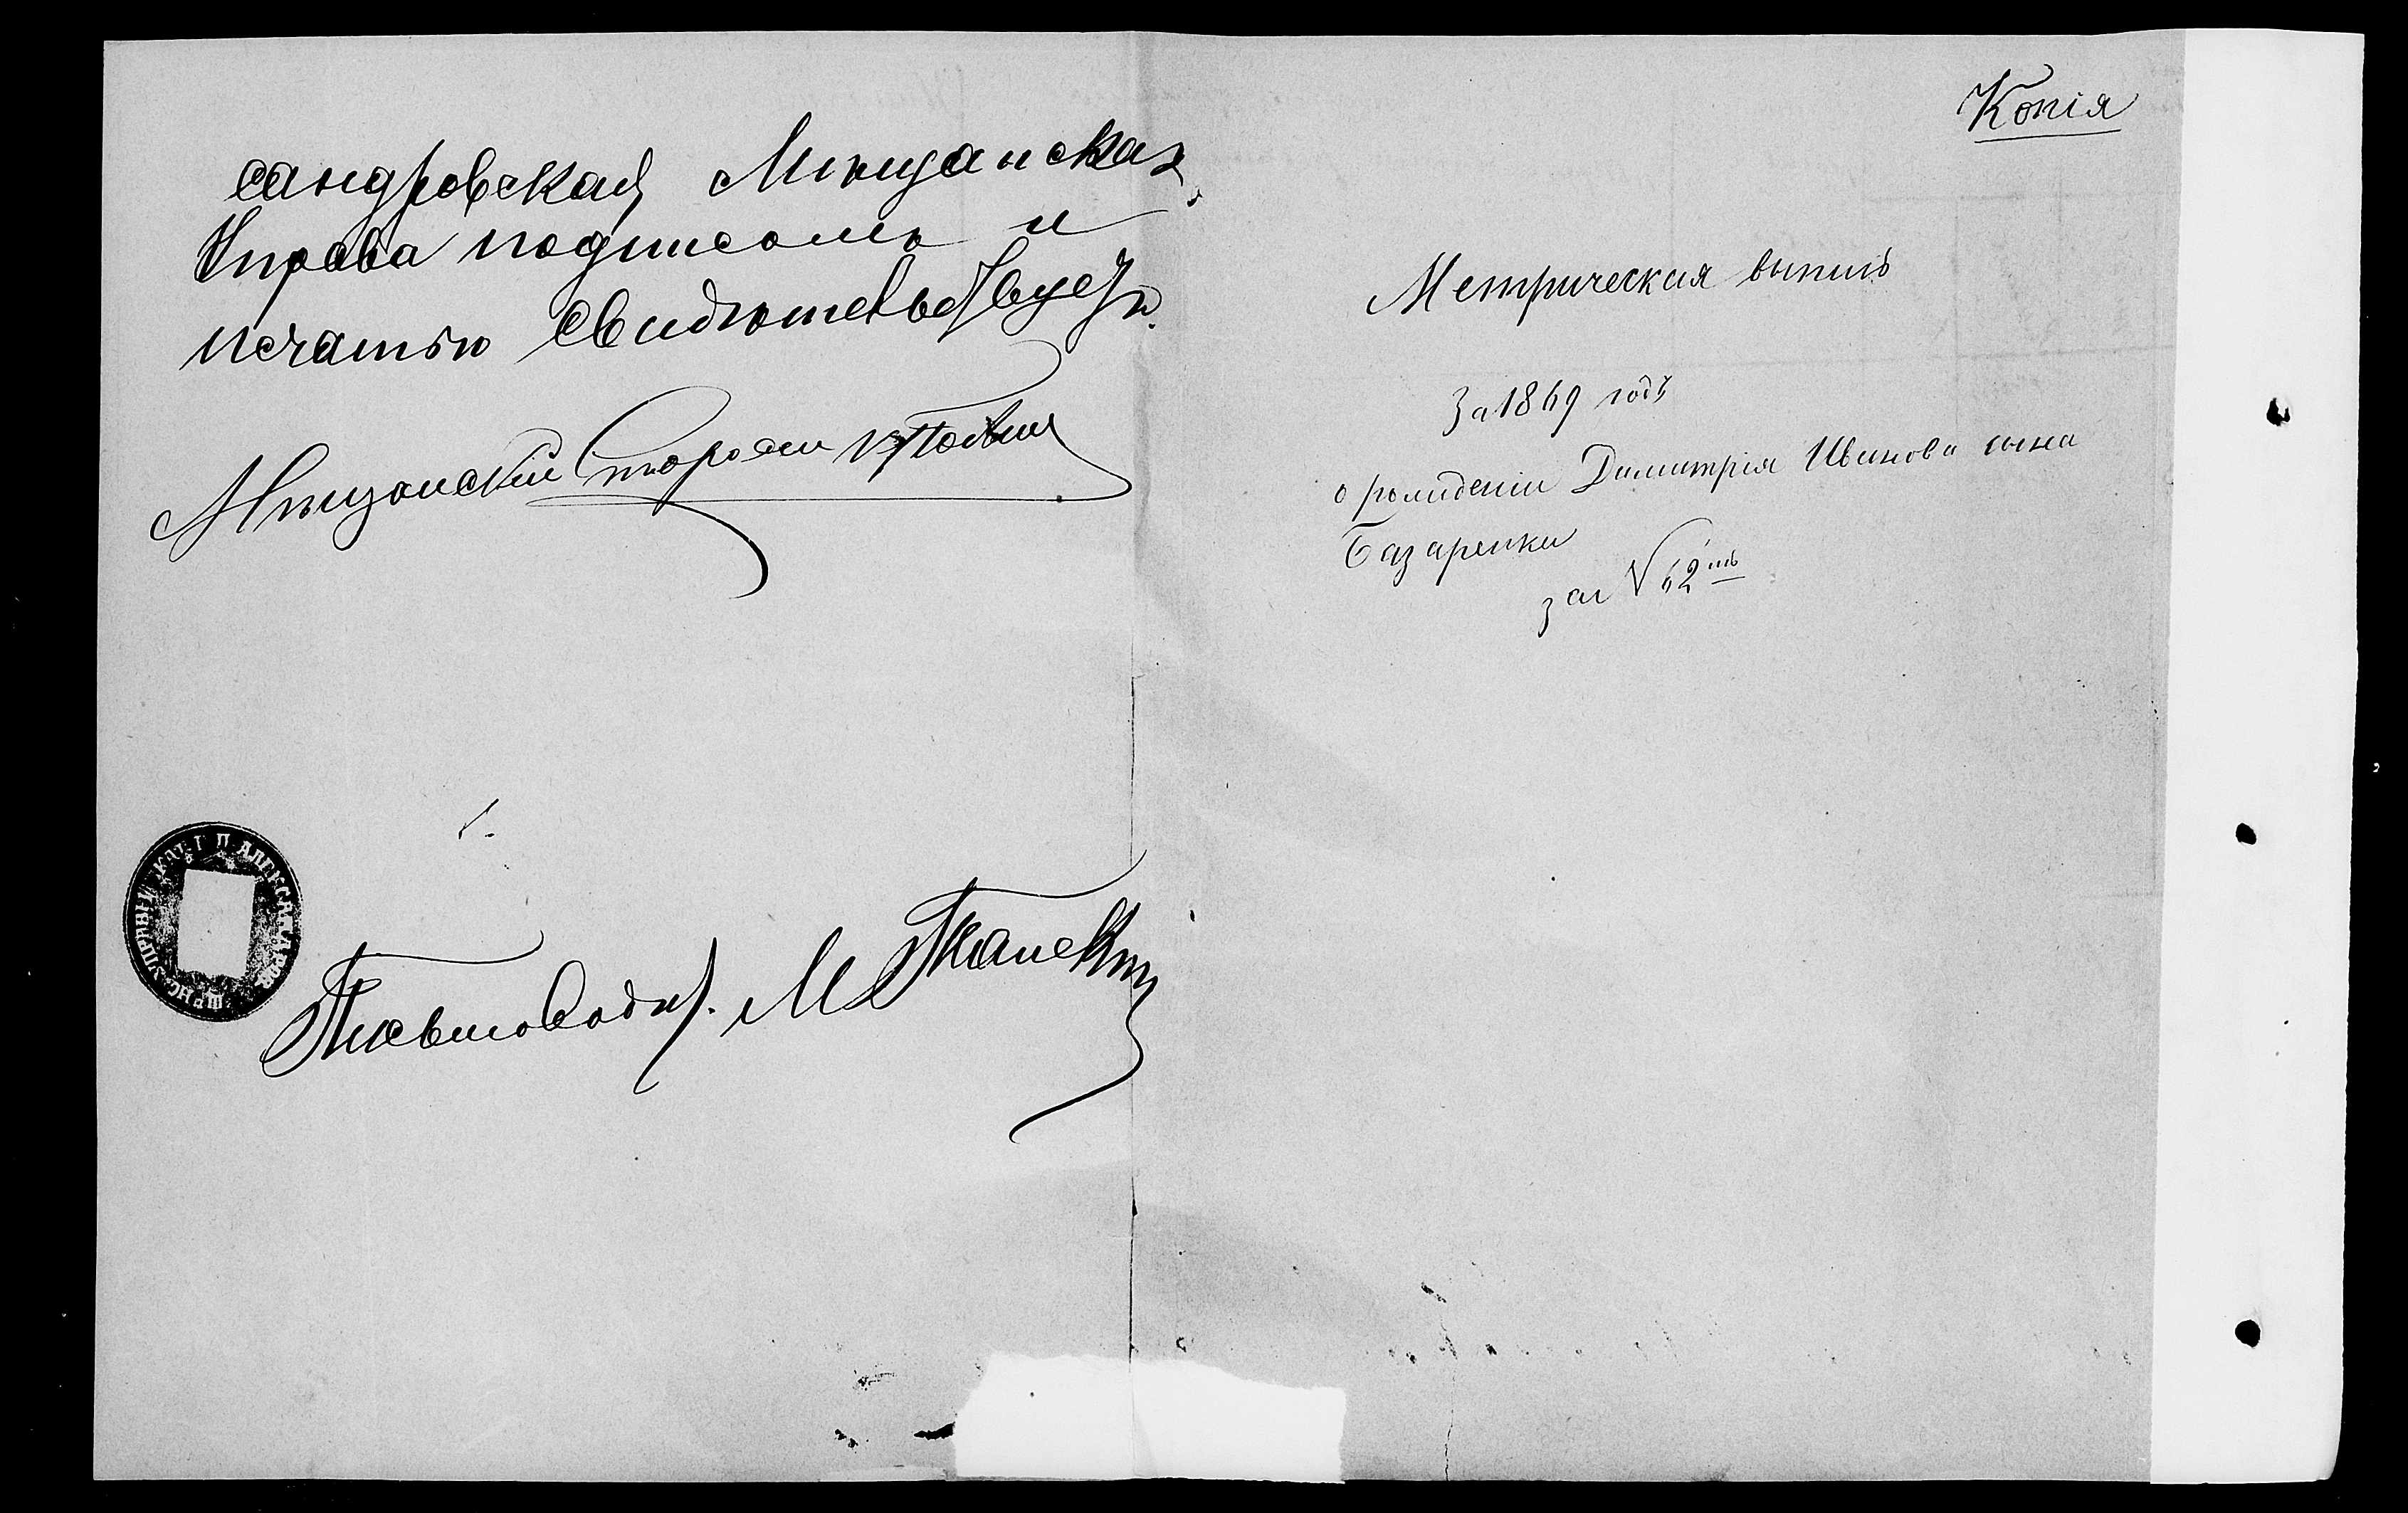 сандровская Мѣщанская
Управа подписомъ и
печатью свидѣтельствуетъ.
Мѣщанскій Староста
Письмоводит.
Копія
Метрическая выпись
За 1869 годъ
о рожденіи Димитрія Иванова сына
Базаренки
за № 62